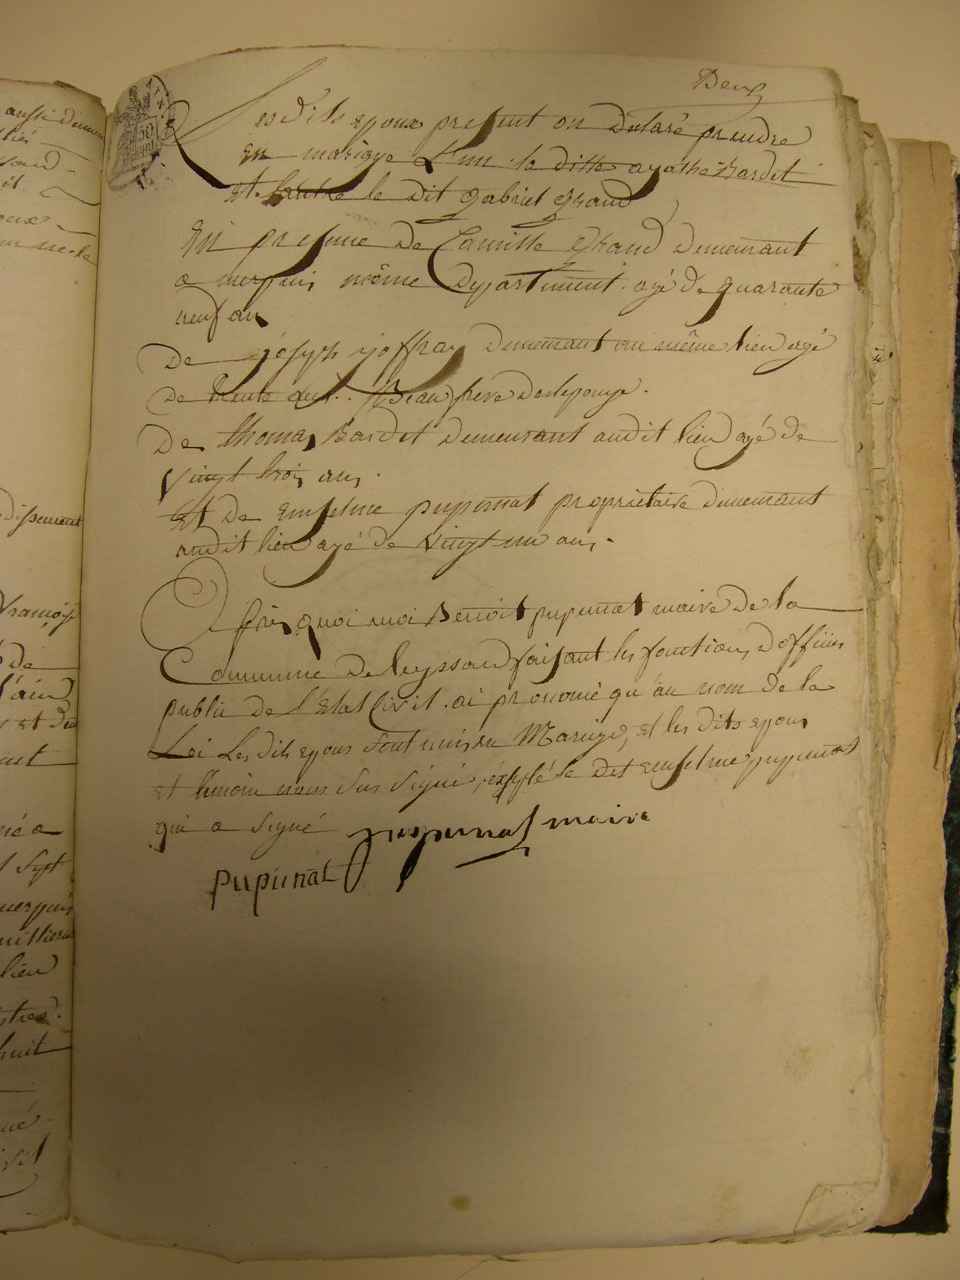 Deux
Les dits epoux présent on déclaré prendre
En mariage L'un la ditte agathe Bardet
Et Lautre le dit gabriel grand
En présence de Camille grand demeurant
a merpuis même département agé de quarante
neuf ans
De joseph joffray demeurant au même lieu agé
de trente ans. Beau frere de lepouse.
De thomas Bardet demeurant audit lieu agé de
vingt trois ans.
Et De enselme pupunat propriétaire demeurant
audit lieu agé de vingt un ans.
Apris quoi moi Benoit pupunat maire de la
Commune de leyssard faisant les fonctions d'officier
public de l'état civil. ai prononcé qu'au nom de la
Loi Les dits epous sont unis en Mariage, et les dits epous
et témoin nous sus signé, éxsepté le dit enselme pupunat
qui a signé pupunat maire
pupunat
aussi demeu
grand
dissement
françois
de
l'ain
et du
né a
sept
merpuis
lieu
huit